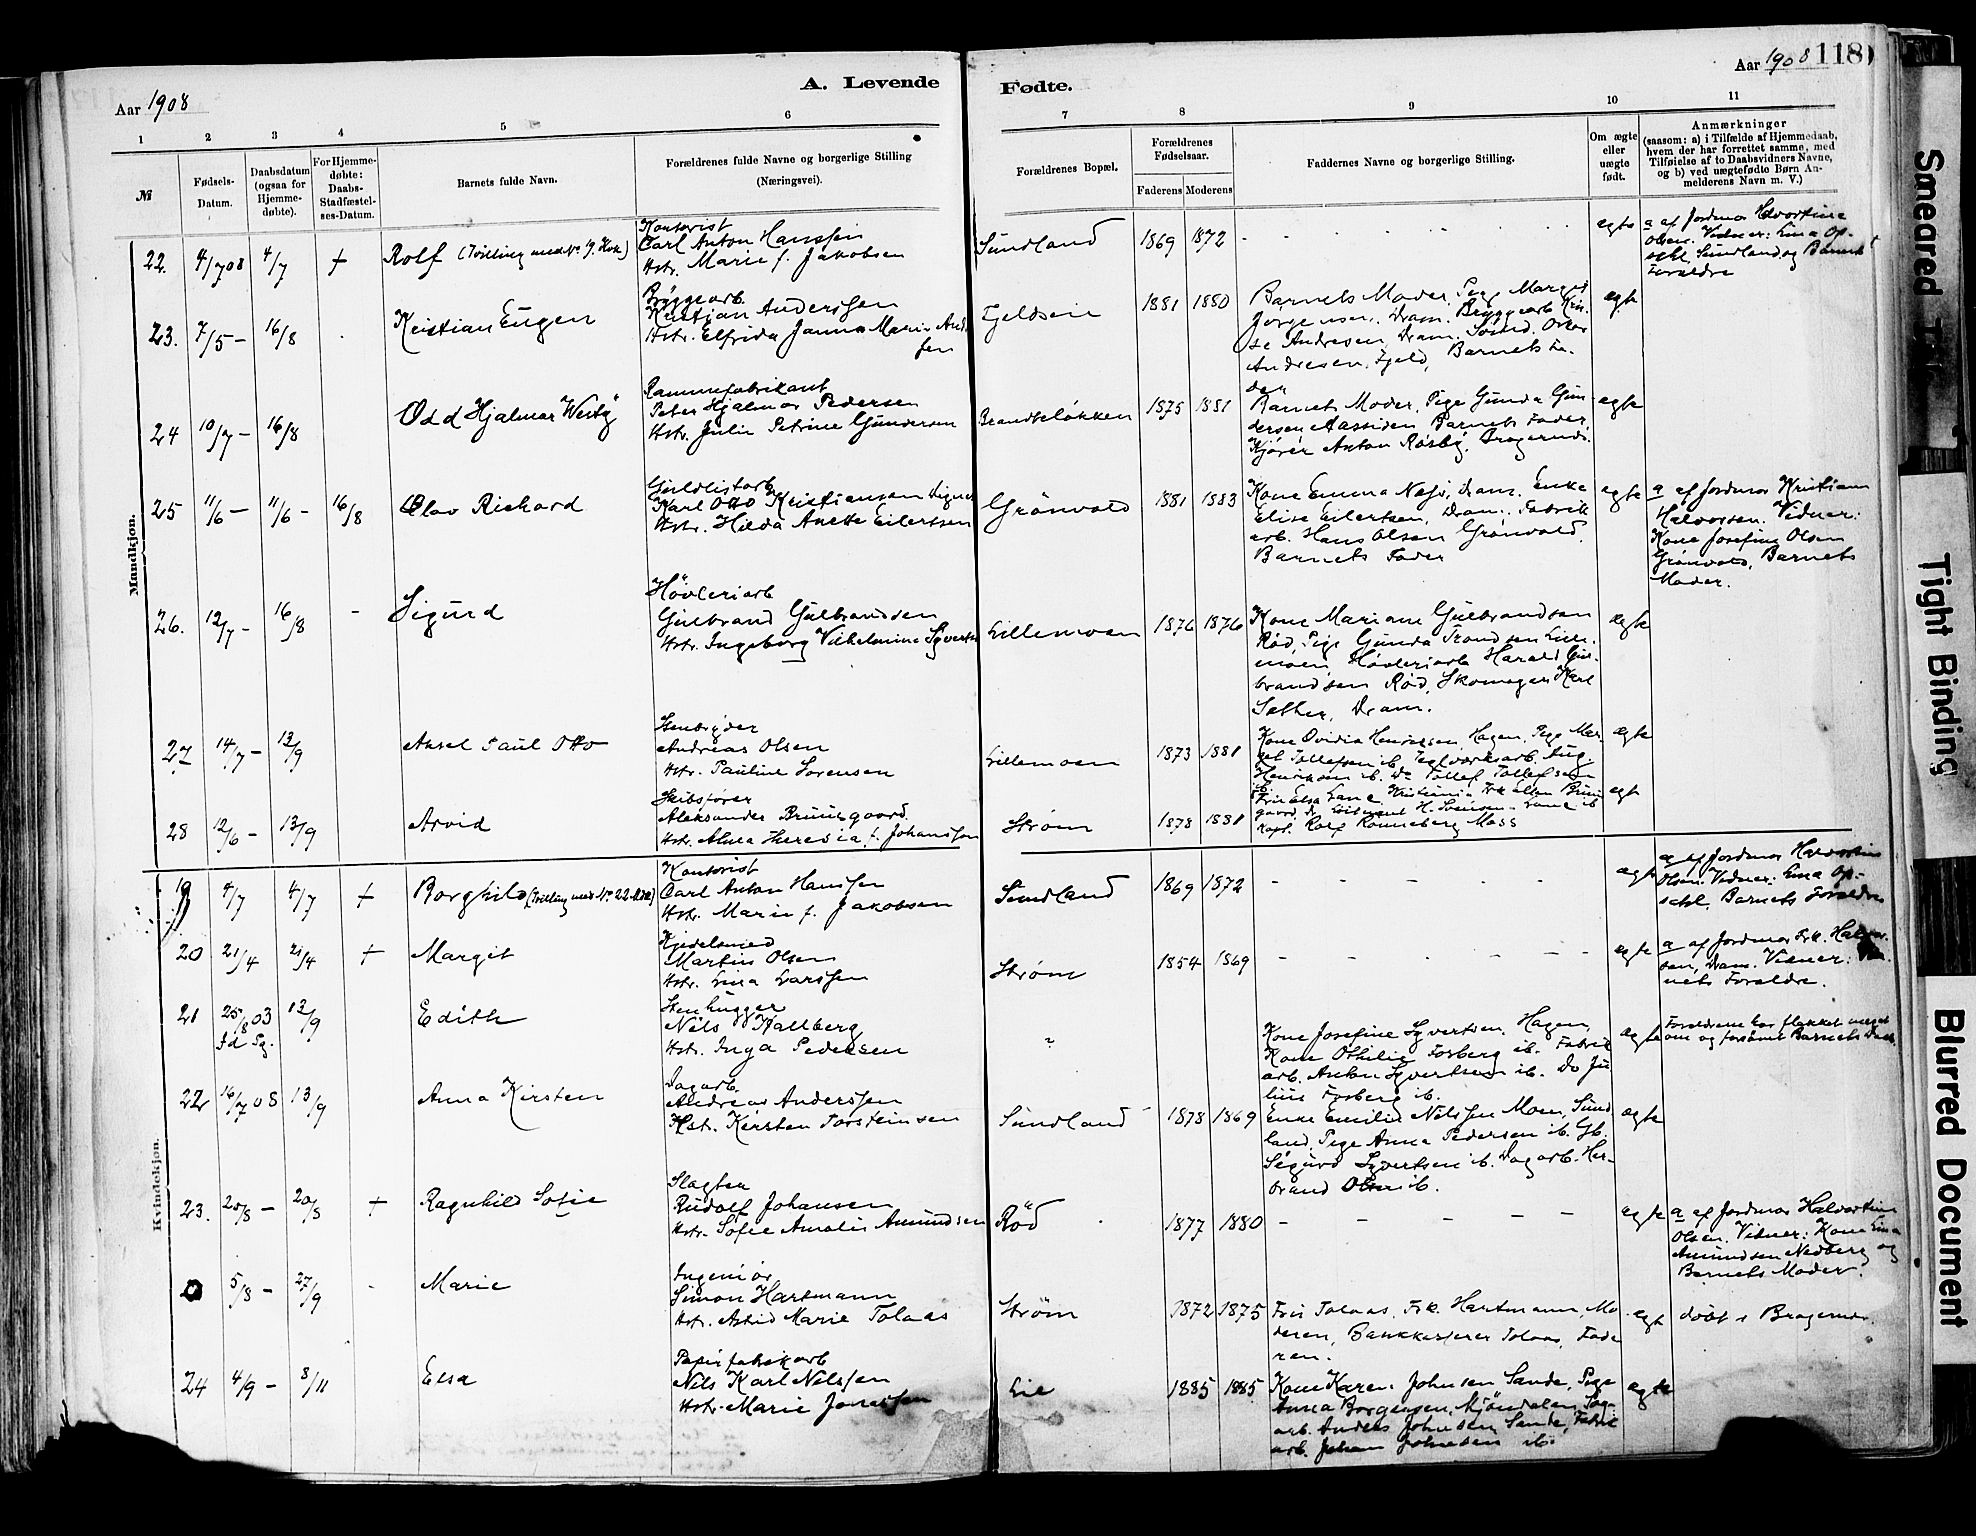 Aar 1908
A. Levende
Fødte.
Aar 1908 118
1 2 3 4 5 6 7 8 9 10 11
№
Fødsels-
Datum.
Daabsdatum
(ogsaa for
Hjemme-
døbte).
For Hjemme-
døbte:
Daabs-
Stadfæstel-
ses-Datum.
Barnets fulde Navn.
Forældrenes fulde Navne og borgerlige Stilling
(Næringsvei).
Forældrenes Bopæl.
Forældrenes
Fødselsaar.
Faderens Moderens
Faddernes Navne og borgerlige Stilling.
Om ægte
eller
uægte
født.
Anmærkninger
(saasom: a) i Tilfælde af Hjemmedaab,
hvem der har forrettet samme, med
Tilføielse af to Daabsvidners Navne,
og b) ved uægtefødte Børn An-
melderens Navn m. V.)
Mandkjøn.
22. 4/7 08 4/7 + Rolf (Tvilling med No 19. Kvk)
Kontorist
Carl Anton Hanssen
Hstr. Marie f. Jakobsen
Sundland 1869 1872 egte
a af Jordmor Halvortine
Olsen. Vidner: Lina Op-
sahl, Sundland og Barnets
Forældre
23. 7/5 – 16/8 Kristian Eugen
Bryggearb.
Kristian Anderssen
Hstr. Elfrida Janna Marie Andr
sen
Fjeldsein 1881 1880
Barnets Moder, Pige Margit
Jørgensen, Dram. Bryggearb Kris.
se Andresen, Dram. Oskar
Andresen, Fjeld, Barnets Fa-
der
egte
24 10/7 – 16/8 Odd Hjalmar "Westby"
Rammefabrikant
Peter Hjalmar Pedersen
Hstr. Julie Petrine Gundersen
Brandtsløkken 1875 1881
Barnets Moder, Pige Gunda Gun
dersen Aassiden Barnets Fader,
Kjører Anton Røsby, Bragernæs.
egte
25 11/6 – 11/6 – 16/8 Olav Richard
Guldlistarb
Karl Otto Kristiansen
Hstr. Hilda Anette Eilertsen
Grønvold 1881 1883
Kone Emma Næss, Dram. Enke
Elise Eilertsen, Dram. Fabrik
arb. Hans Olsen Grønvold,
Barnets Fader
egte
a af Jordmor Kristiane
Halvorsen. Vidner:
Kone Josefine Olsen
Grønvold, Barnets
Moder.
26. 12/7 – 16/8 – Sigurd
Høvleriarb
Gulbrand Gulbrandsen
Hstr. Ingeborg Vilhelmine Syverts
Lillemoen 1876 1876
Kone Mariane Gulbrandsen
Rød, Pige Gunda Trondsen Lille-
moen, Høvleriarb Harald Gul-
brandsen Rød, Skomager Karl
Sæther, Dram.
egte
27 14/7 – 13/9 Aksel Paul Otto
Stenbryder
Andreas Olsen
Hstr. Pauline Sørensen
Lillemoen 1873 1881
Kone Ovidia Henriksen, Hagen, Pige Mar-
get Tollefsen ib. Teglværksarb. Aug.
Henriksen ib. Do Tollef Tollefsen
ib.
egte
28 12/6 – 13/9 Arvid
Skibsfører
Aleksander Bruusgaard.
Hstr. Alma Theresia f. Johanssen
Strøm 1878 1881
Frk Elsa Lane, Kristiania Frk Ellen Bruus
gaard, Dr. H. Svensen – Lane ib
Kapt. Rolf Rønneberg Moss
egte
Kvindekjøn.
19 4/7 4/7 + Borghild (Tvilling med No 22 Mdk)
Kontorist
Carl Anton Hanssen
Hstr. Marie f. Jakobsen
Sundland 1869 1872 – – – – egte
a af Jordmor Halvortine
Olsen. Vidner: Lina Op-
sahl, Barnets Forældre
20 21/4 21/4 + Margit
Kjedelsmed
Martin Olsen
Hstr. Lina Larssen
Strøm 1854 1869 – – – – egte
a af Jordmor Frk. Halvor-
sen, Dram. Vidner: Bar-
nets Forældre.
21 25/8 03 13/9 Edith
Fd Sg.
Stenhugger
Nils Hallberg
Hstr. Inga Pedersen
Kone Josefine Syvertsen, Hagen,
Kone Othilie Forberg ib. Fabrik
arb. Anton Syvertsen ib. Do Ju
lius Forberg ib.
egte
Forældrene har flakket meget
om og forsømt Barnets Daab.
22 16/7 08 13/9 Anna Kirsten
Dagarb.
Andreas Anderssen
Hst. Kirsten Torsteinsen
Sundland 1878 1869
Enke Emilie Nilssen Moen, Sund
land, Pige Anna Pedersen ib. Gb.
Sigurd Syvertsen ib. Dagarb. Her-
brand Olsen ib.
egte
23. 20/8 – 20/8 + Ragnhild Sofie
Slagter
Rudolf Johansen
Hstr. Sofie Amalie Amundsen
Rød 1877 1880 – – – – – egte
a af Jordmor Halvortine
Olsen. Vidner: Kone Lina
Amundsen Nedberg og
Barnets Moder.
0 5/8 – 27/9 Marie
Ingeniør
Simon Hartmann
Hstr. Astrid Marie Tolaas
Strøm 1872 1875
Fru Tolaas, Frk. Hartmann, Mo
deren, Bankkasserer Tolaas, Fade
ren.
egte døbt i Bragernæs.
24 4/9 – 8/11 Elsa
Papirfabrikarb
Nils Karl Nilssen
Hstr. Marie Jonassen
Lie 1885 1885
Kone Karen Johnsen Sande, Pige
Anna Borgersen, Mjøndalen, Sag-
arb. Anders Johnsen, Sande, Fabrik
arb. Johan Johnsen ib.
egte
Smeared
Tight Binding
Blurred Document